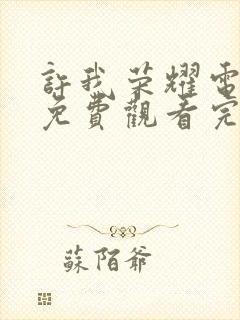 許我荣耀電
免費觀看完
蘇陌爺